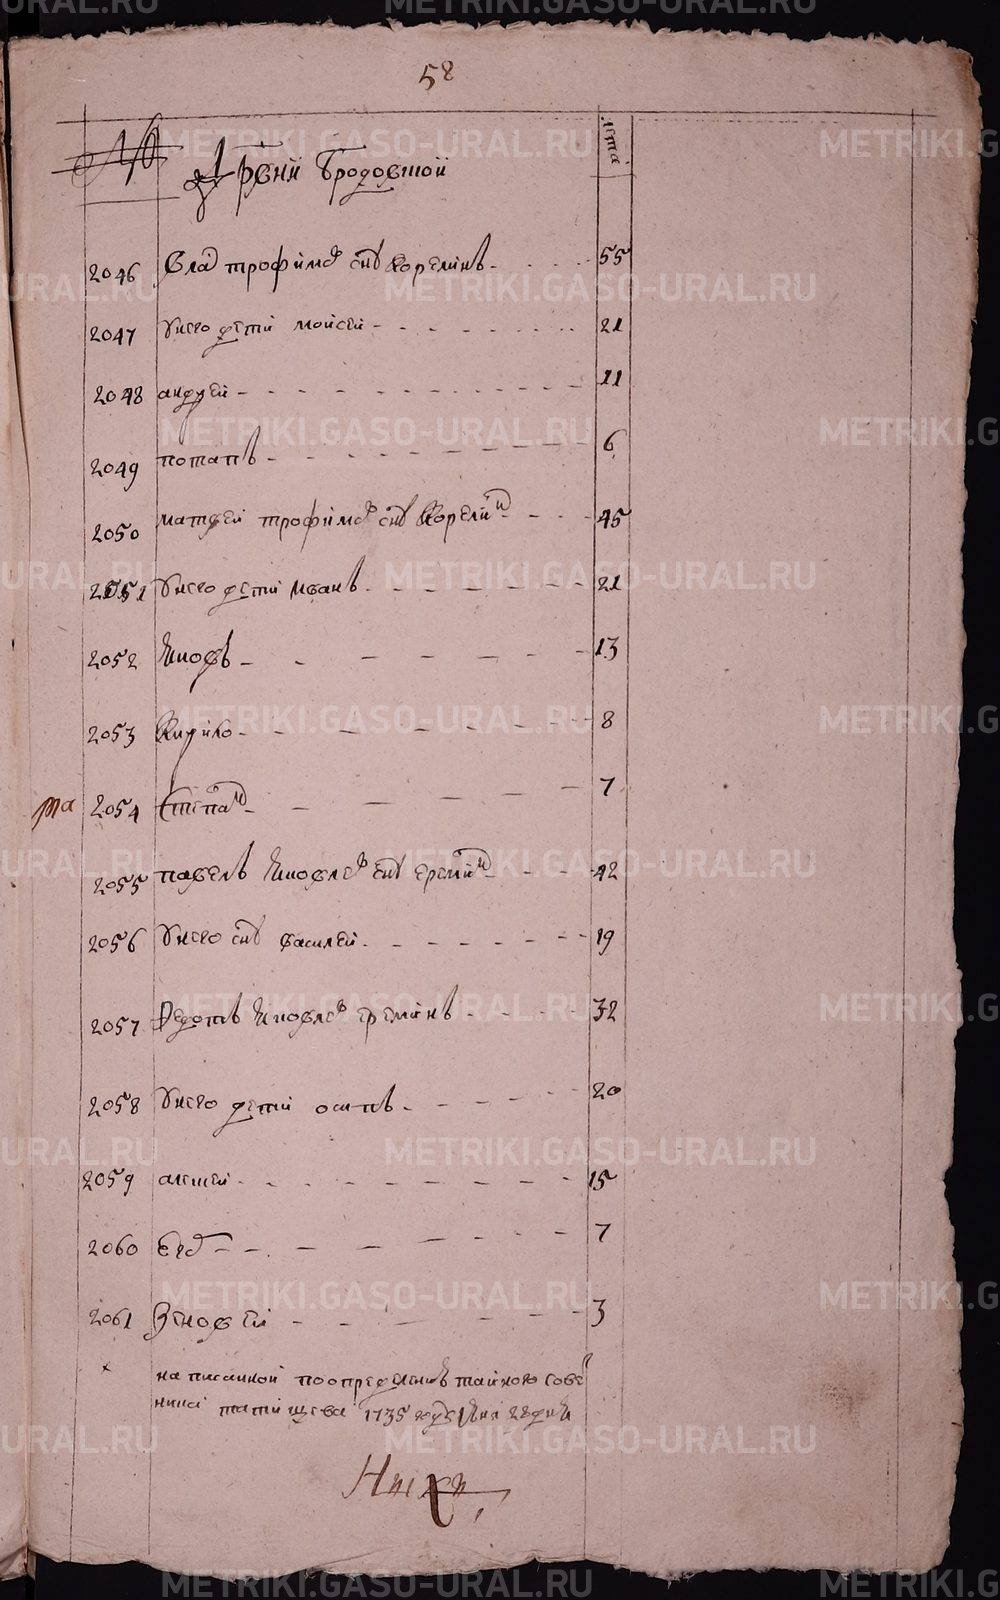 58
№ Дрвни Бродовской лета
2046 Влас трофимов снъ Корелинъ 55
2047 Унего дети моисей 21
2048 андрей 11
2049 потапъ 6
2050 матвей трофимов снъ Корелин 45
2051 Унего дети Иванъ 21
2052 Яковъ 13
2053 Кирило 8
2054 Степан 7
2055 павелъ Яковлев снъ еремин 42
2056 Унего снъ василей 19
2057 Федотъ Яковлев ереминъ 32
2058 Унего дети осипъ 20
2059 алексей 15
2060 7
2061 Зеновей 3
написанной поопределению тайного сове
ника татищева 1735 году
METRIKI.GASO-URAL.RU